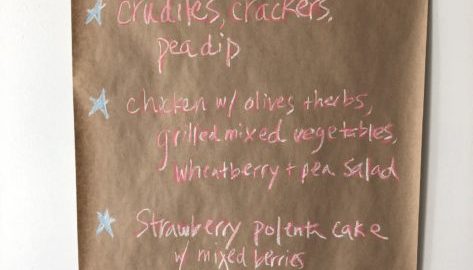 crudites, crackers,
pea dip
chicken w/ olives + herbs,
grilled mixed vegetables,
wheatberry + pea salad
Strawberry polenta cake
w/ mixed berries